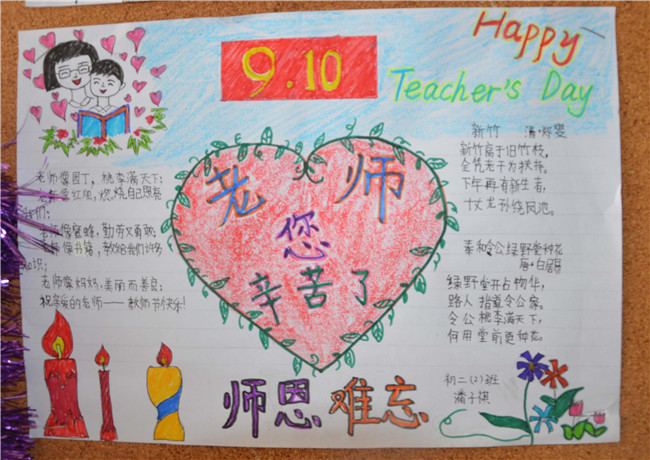 9.10
Happy
Teacher's Day
老师
您
辛苦了
老师像园丁，桃李满天下；
老师像红烛，燃烧自己照亮
我们；
老师像蜜蜂，勤劳又勇敢；
老师像书籍，教给我们许多
知识；
老师像妈妈，美丽而善良；
祝亲爱的老师——教师节快乐！
新竹 清·郑燮
新竹高于旧竹枝，
全凭老干为扶持。
下年再有新生者，
十丈龙孙绕凤池。
奉和令公绿野堂种花
唐·白居易
绿野堂开占物华，
路人指道令公家。
令公桃李满天下，
何用堂前更种花。
初二(2)班
潘子祺
师恩难忘